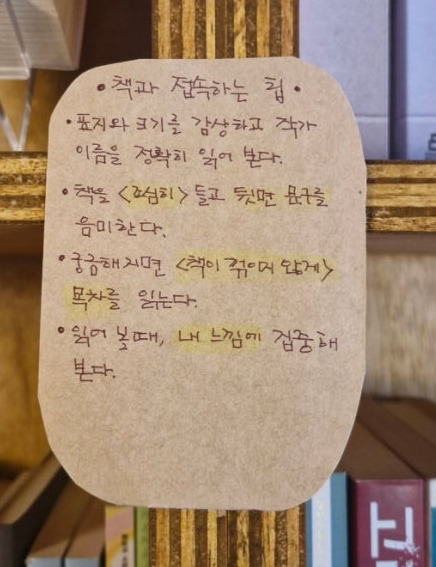 • 책과 접속하는 팁 •
• 표지와 크기를 감상하고 작가
이름을 정확히 읽어 본다.
• 책을 <조심히> 들고 뒷면 문구를
음미한다.
• 궁금해지면 <책이 꺾이지 않게>
목차를 읽는다.
• 읽어 볼 때, 내 느낌에 집중해
본다.